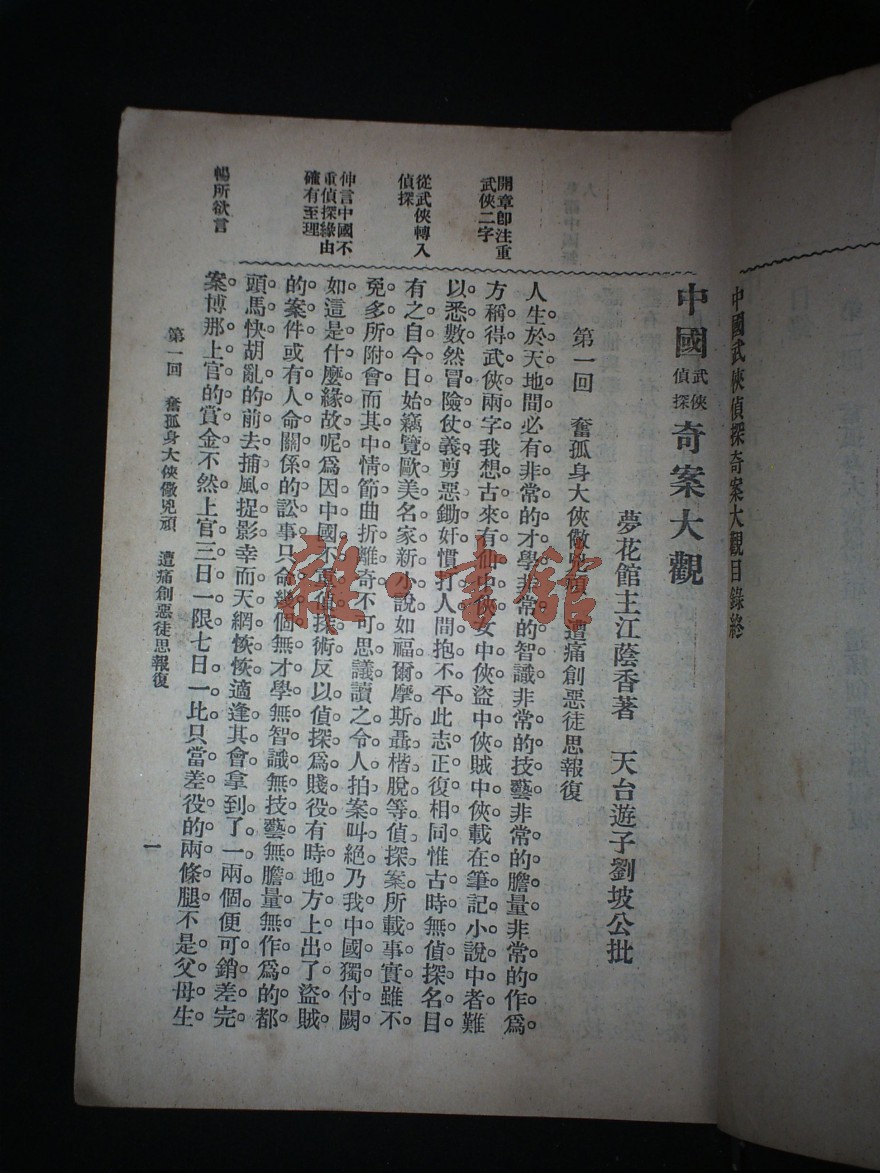 中國武俠偵探奇案大觀目錄終
中國武俠偵探奇案大觀
夢花館主江蔭香著　天台遊子劉坡公批
第一回　奮孤身大俠儆兇頑　遭痛創惡徒思報復
人生於天地間必有非常的才學非常的智識非常的技藝非常的膽量非常的作爲
方稱得武俠兩字我想古來有仙中俠女中俠盜中俠賊中俠載在筆記小說中者難
以悉數然冒險仗義剪惡鋤奸慣打人間抱不平此志正復相同惟古時無偵探名目
有之自今日始竊覽歐美名家新小說如福爾摩斯聶楷脫等偵探案所載事實雖不
免多所附會而其中情節曲折離奇不可思議讀之令人拍案叫絕乃我中國獨付闕
如這是什麼緣故呢爲因中國不重偵探術反以偵探爲賤役有時地方上出了盜賊
的案件或有人命關係的訟事只命幾個無才學無智識無技藝無膽量無作爲的都
頭馬快胡亂的前去捕風捉影幸而天網恢恢適逢其會拿到了一兩個便可銷差完
案博那上官的賞金不然上官三日一限七日一比只當差役的兩條腿不是父母生
開章即注重
武俠二字
從武俠轉入
偵探
伸言中國不
重偵探緣由
確有至理
暢所欲言
第一回　奮孤身大俠儆兇頑　遭痛創惡徒思報復
一
雜·書館